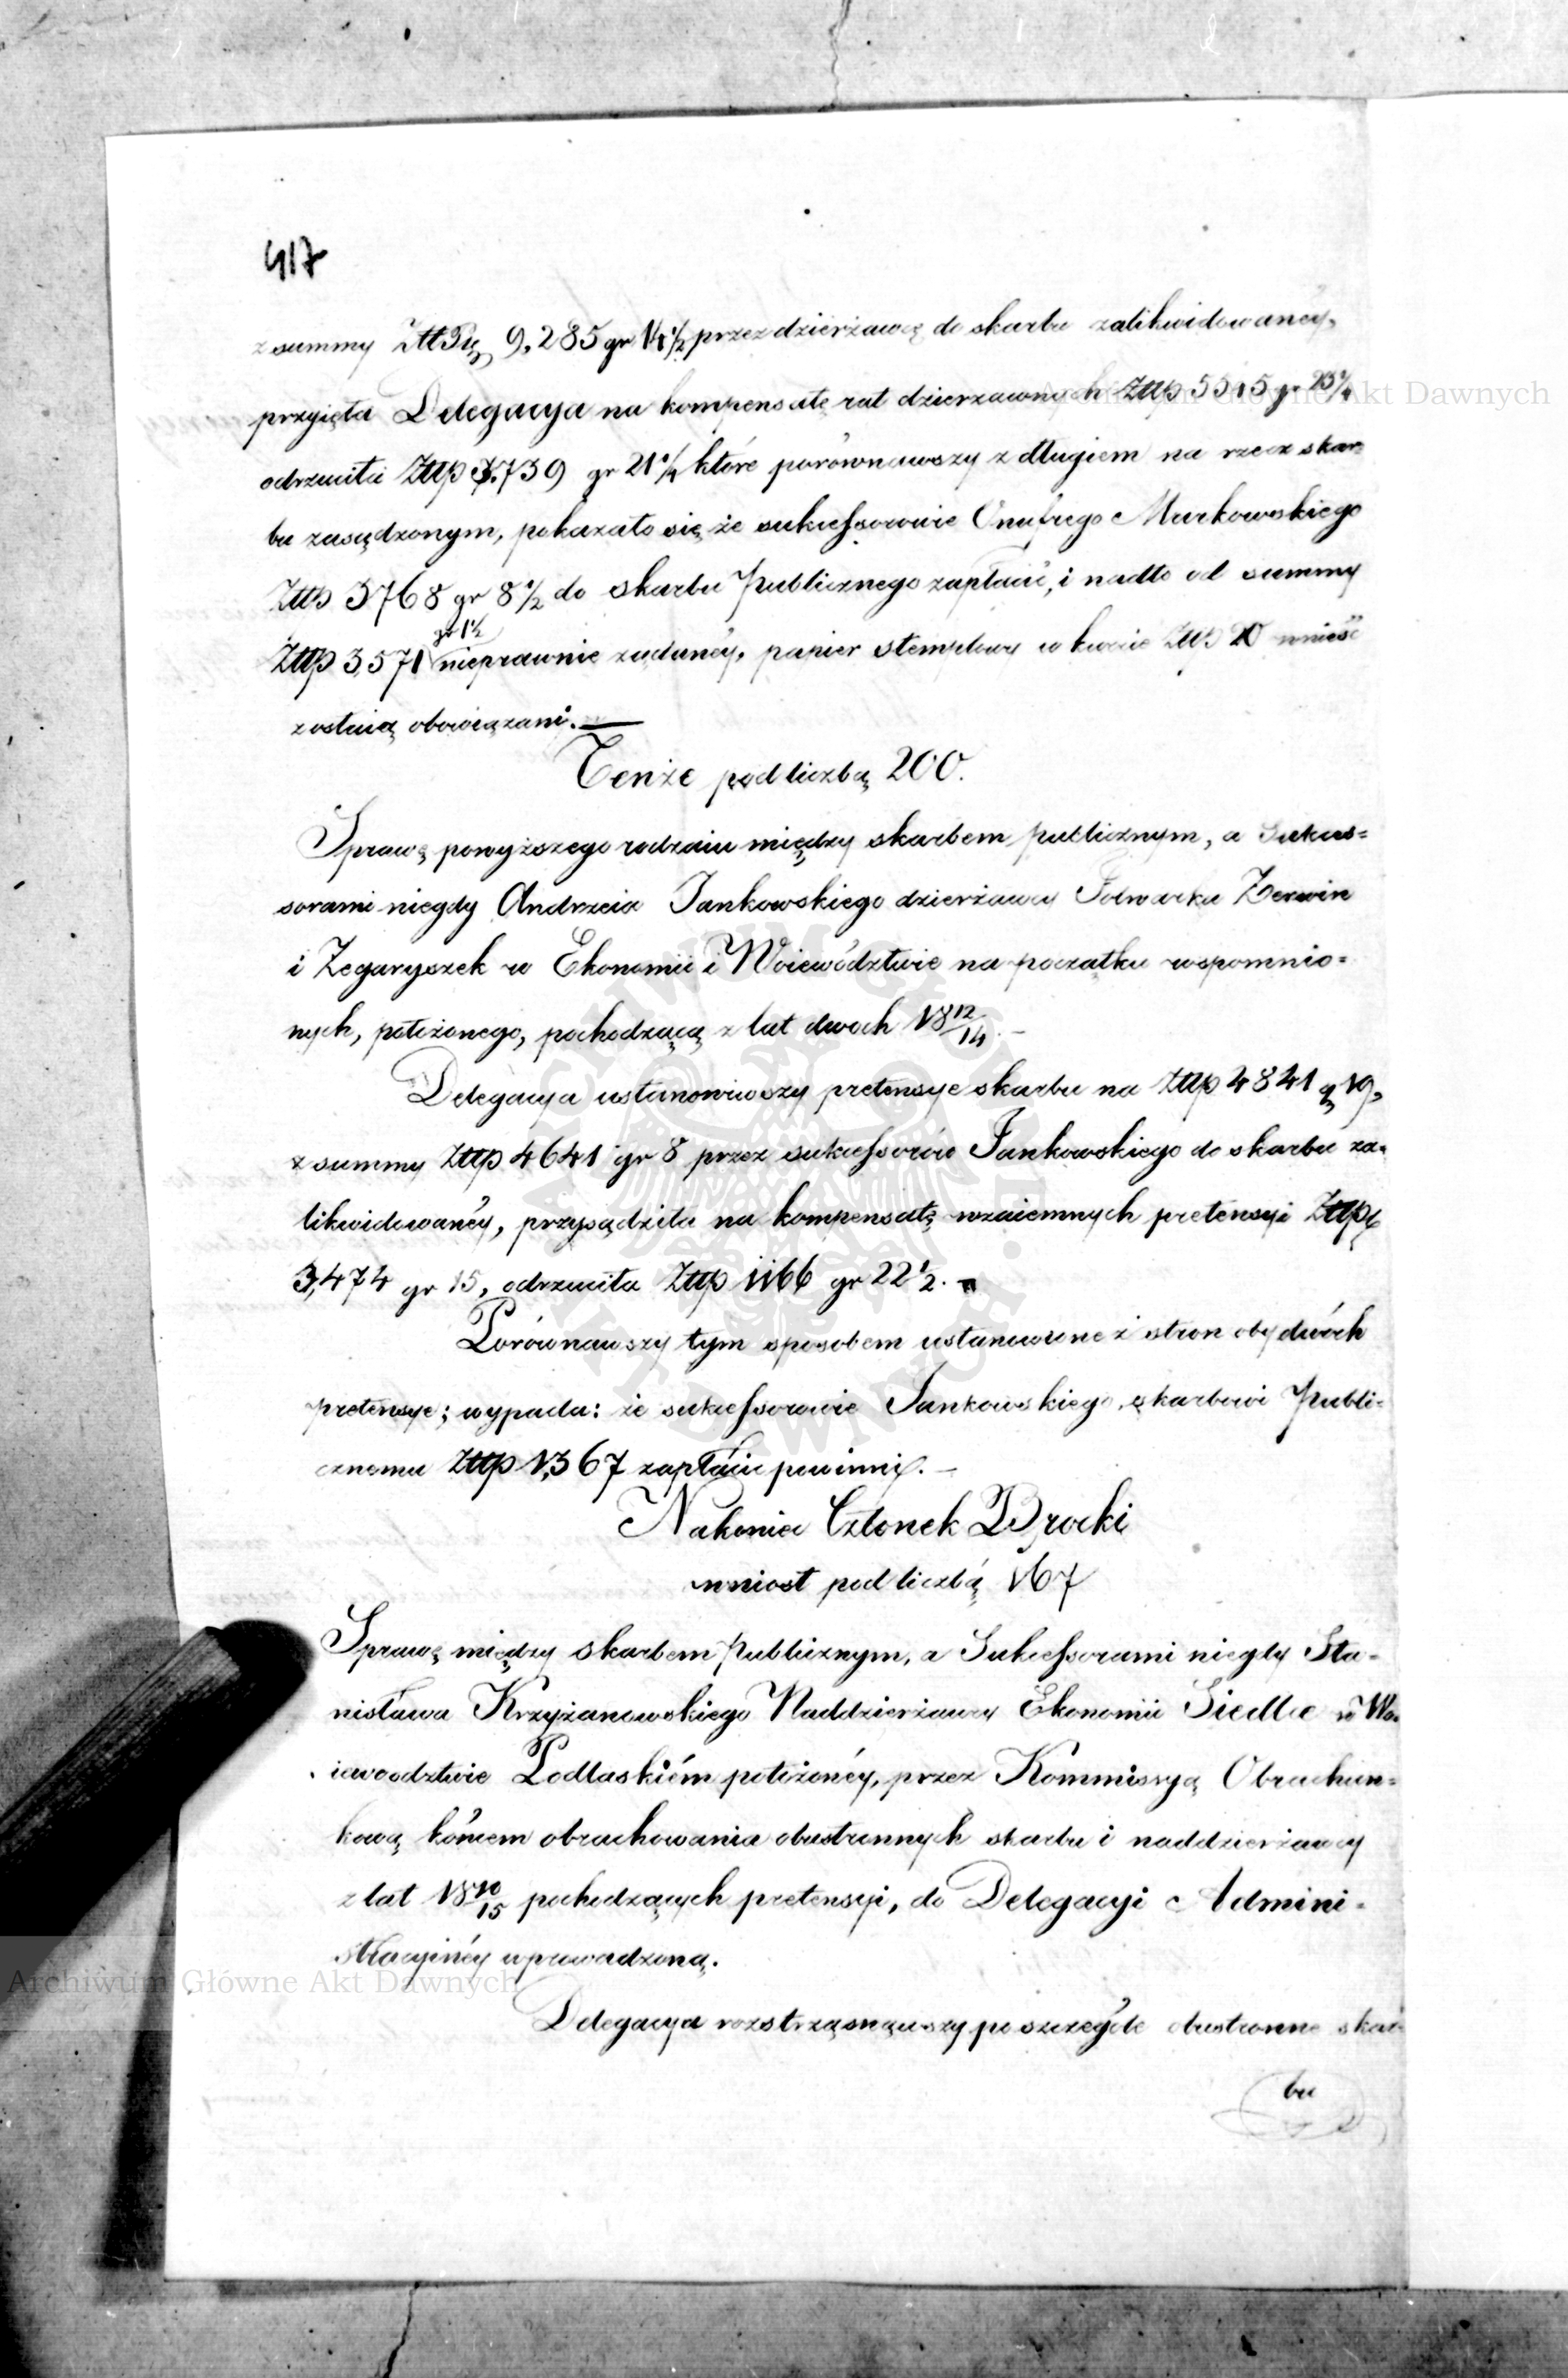 417
z summy ZłtPu 9,285 gr 14½ przez dzierżawcę do skarbu zalikwidowanéy,
przyięła Delegacya na kompensatę rat dzierzawnych Złtp 5545 gr 23¼
odrzuciła Złtp 3.739 gr 21¼ które porównawszy z długiem na rzecz skar=
bu zasądzonym, pokazało się że sukcessorowie Onufrego Murkowskiego
Złtp 3768 gr 8½ do skarbu Publicznego zapłacić, i nadto od summy
gr 1½
Złtp 3,571 nieprawnie żądanéy, papier stemplowy w kwocie Złtp 20 wnieść
zostaią obowiązani.—
Tenże pod liczbą 200.
Sprawę powyższego rodzaiu między skarbem publicznym, a Sukces=
sorami niegdy Andrzeia Jankowskiego dzierżawcy Folwarku Zerwin
i Zegaryszek w Ekonomii i Woiewództwie na początku wspomnio=
nych, położonego, pochodzącą z lat dwoch 18 12/14. –
Delegacya ustanowiwszy pretensye skarbu na Złtp 4841 g 19,
z summy Złtp 4641 gr 8 przez sukcessorów Jankowskiego do skarbu za=
likwidowanéy, przysądziła na kompensatę wzaiemnych pretensyi Złtp
3,474 gr 15, odrzuciła Złtp 1166 gr 22½. –
Porównawszy tym sposobem ustanowione z stron obydwóch
pretensye; wypada: że sukcessorowie Jankowskiego, skarbowi Publi=
cznemu Złtp 1,367 zapłacić powinni. –
Nakoniec Członek Brocki
wniost pod liczbą 167
Sprawę między skarbem Publicznym, a Sukcessorami niegdy Sta=
nisława Krzyżanowskiego Naddzierżawcy Ekonomii Siedlce w Wo=
iewodztwie Podlaskiém położonéy, przez Kommissyą Obrachun=
kową końcem obrachowania obustronnych skarbu i naddzierżawcy
z lat 18 10/15 pochodzących pretensyi, do Delegacyi Admini=
stracyinéy wprowadzoną.
Delegacya rozstrząsnąwszy poszczególe obustronne skar=
bu
Archiwum Główne Akt Dawnych
Archiwum Główne Akt Dawnych
ARCHIWUM GŁÓWNE AKT DAWNYCH